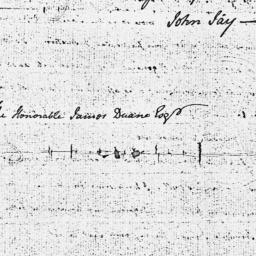 John Jay
Honorable James Duane Esqr